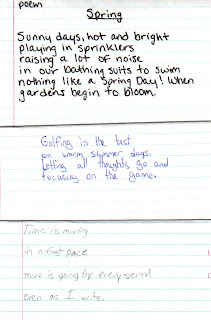 poem
Spring
Sunny days, hot and bright
playing in sprinklers
raising a lot of noise
in our bathing suits to swim
nothing like a Spring Day! When
gardens begin to bloom
Golfing is the best
on warm summer days.
Letting all thoughts go and
focusing on the game.
Time is moving
in a fast pace
more is going by every second
even as I write.